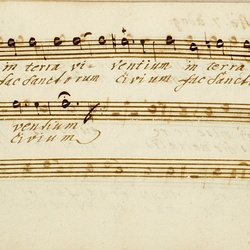 in terra vi- ventium in terra
fac Sanctorum civium fac Sanct
ventium
civium